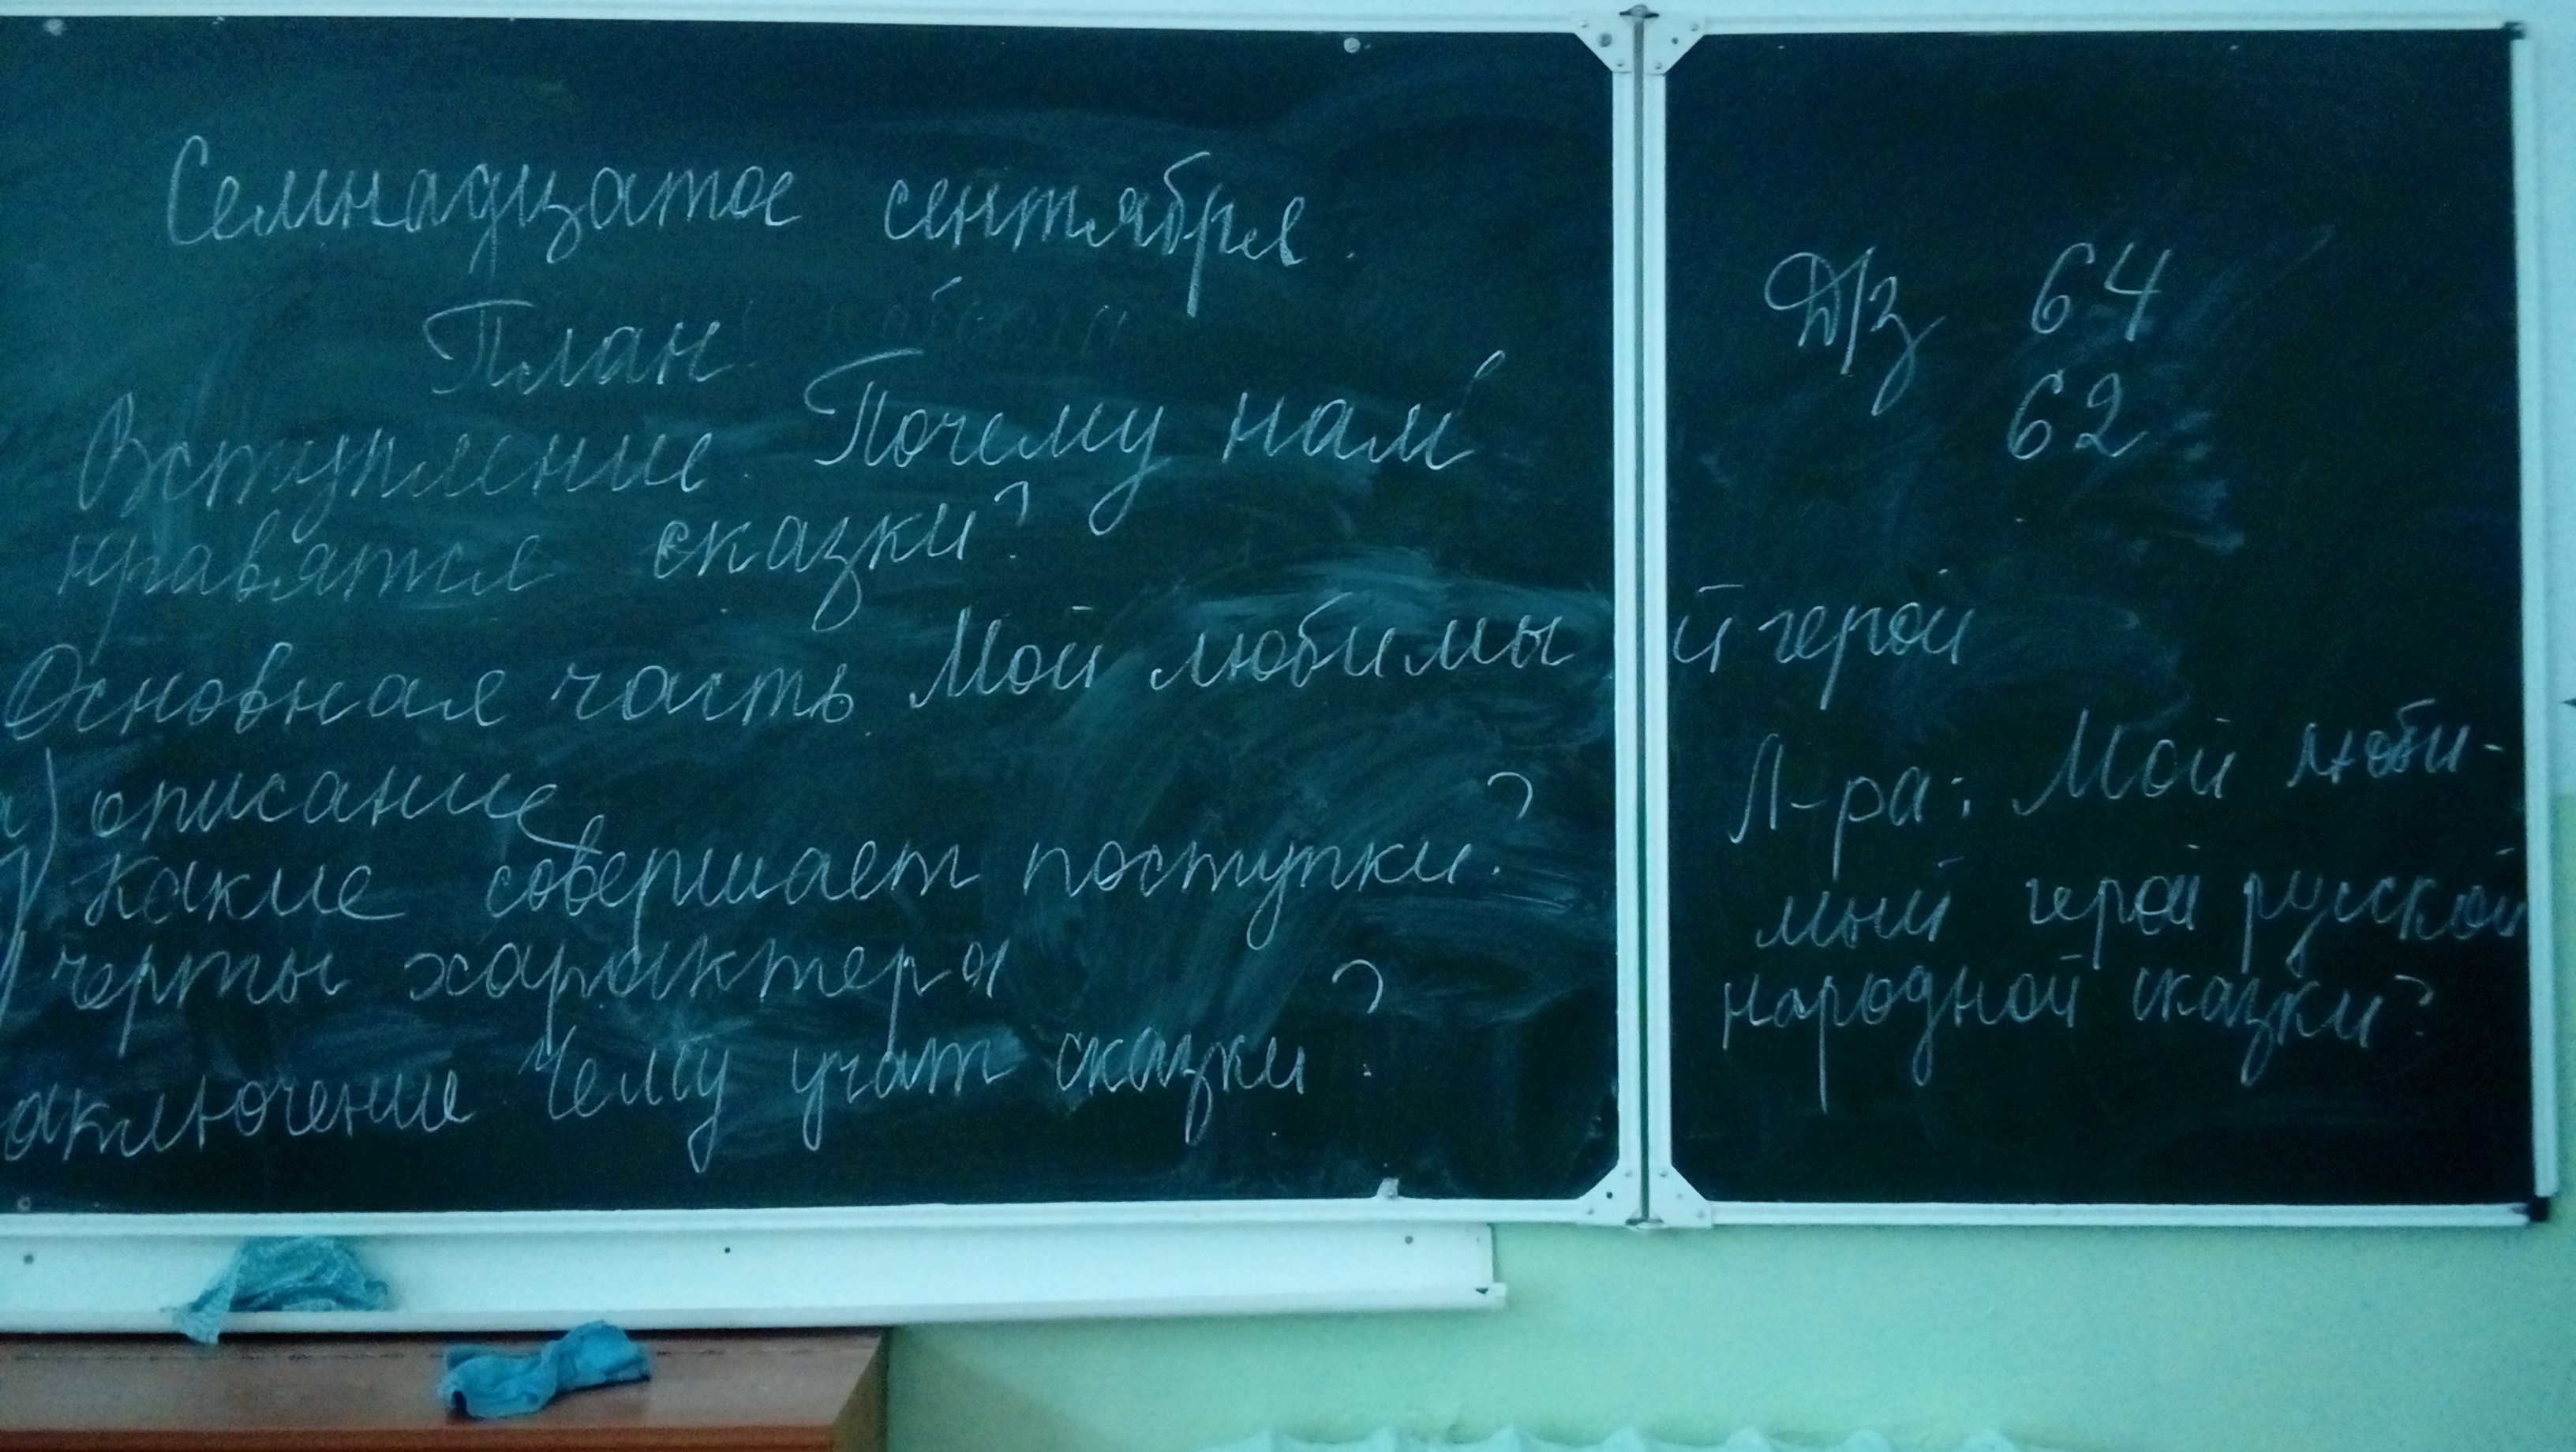 Семнадцатое сентября.
План
Вступление. Почему нам
нравятся сказки?
Основная часть. Мой любимый герой
) описание
) Какие совершает поступки?
) черты характера
аключение Чему учат сказки?
Д/з 64
62
Л-ра: Мой люби-
мый герой русской
народной сказки?